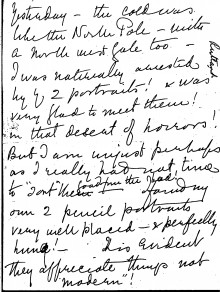 Yesterday – the cold was
like the North Pole – with
a North west gale too –
I was naturally arrested
by yr 2 portraits! & was
very glad to meet them!
in that desert of horrors!
But I am unjust perhaps
as I really had not time
to
our 2 pencil portraits
very well placed – & perfectly
hung! – It is evident
they appreciate things not
"modern"!